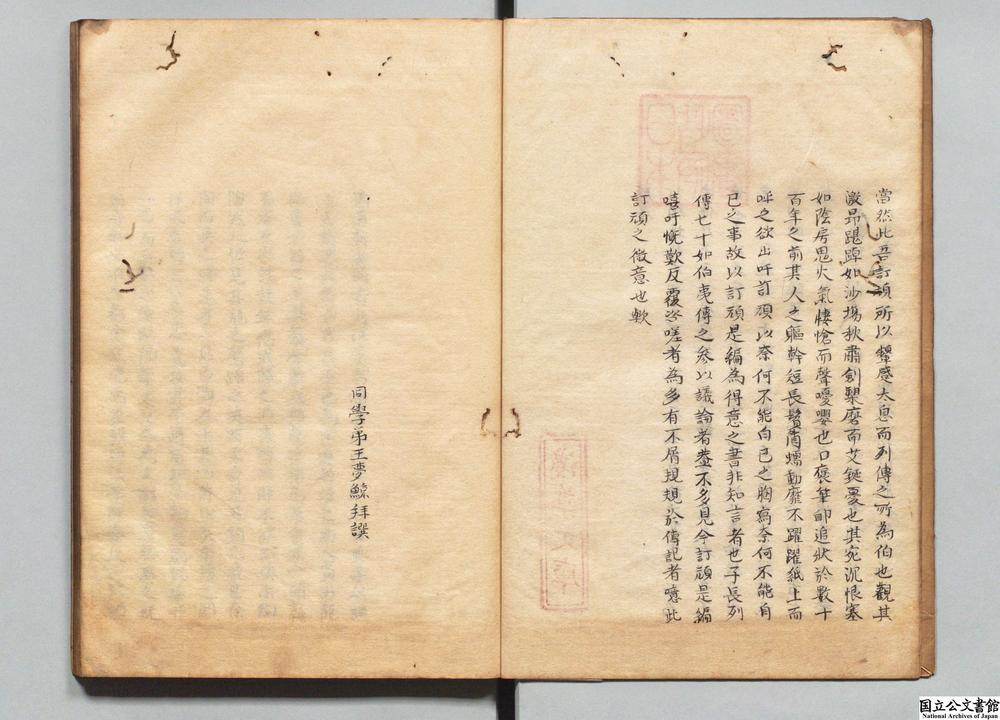 當然此吾訂頑所以顰感太息而列傳之所為伯也觀其
激昂踸踔如沙場秋肅劍槊磨而艾鋋憂也其宛沉恨塞
如陰房鬼火氣悽愴而聲嚘嚶也口褒筆卽追狀於數十
百年之前其人之軀幹短長鬚眉蠕動靡不躍躍紙上而
呼之欲出吁訂頑以奈何不能白己之胸寫奈何不能自
已之事故以訂頑是編為得意之書非知言者也子長列
傳七十如伯夷傳之參以議論者盖不多見今訂頑是編
嘻吁慨歎反覆咨嗟者為多有不屑規規於傳記者噫此
訂頑之微意也歟
同學弟王夢鯨拜譔
国立公文書館
National Archives of Japan